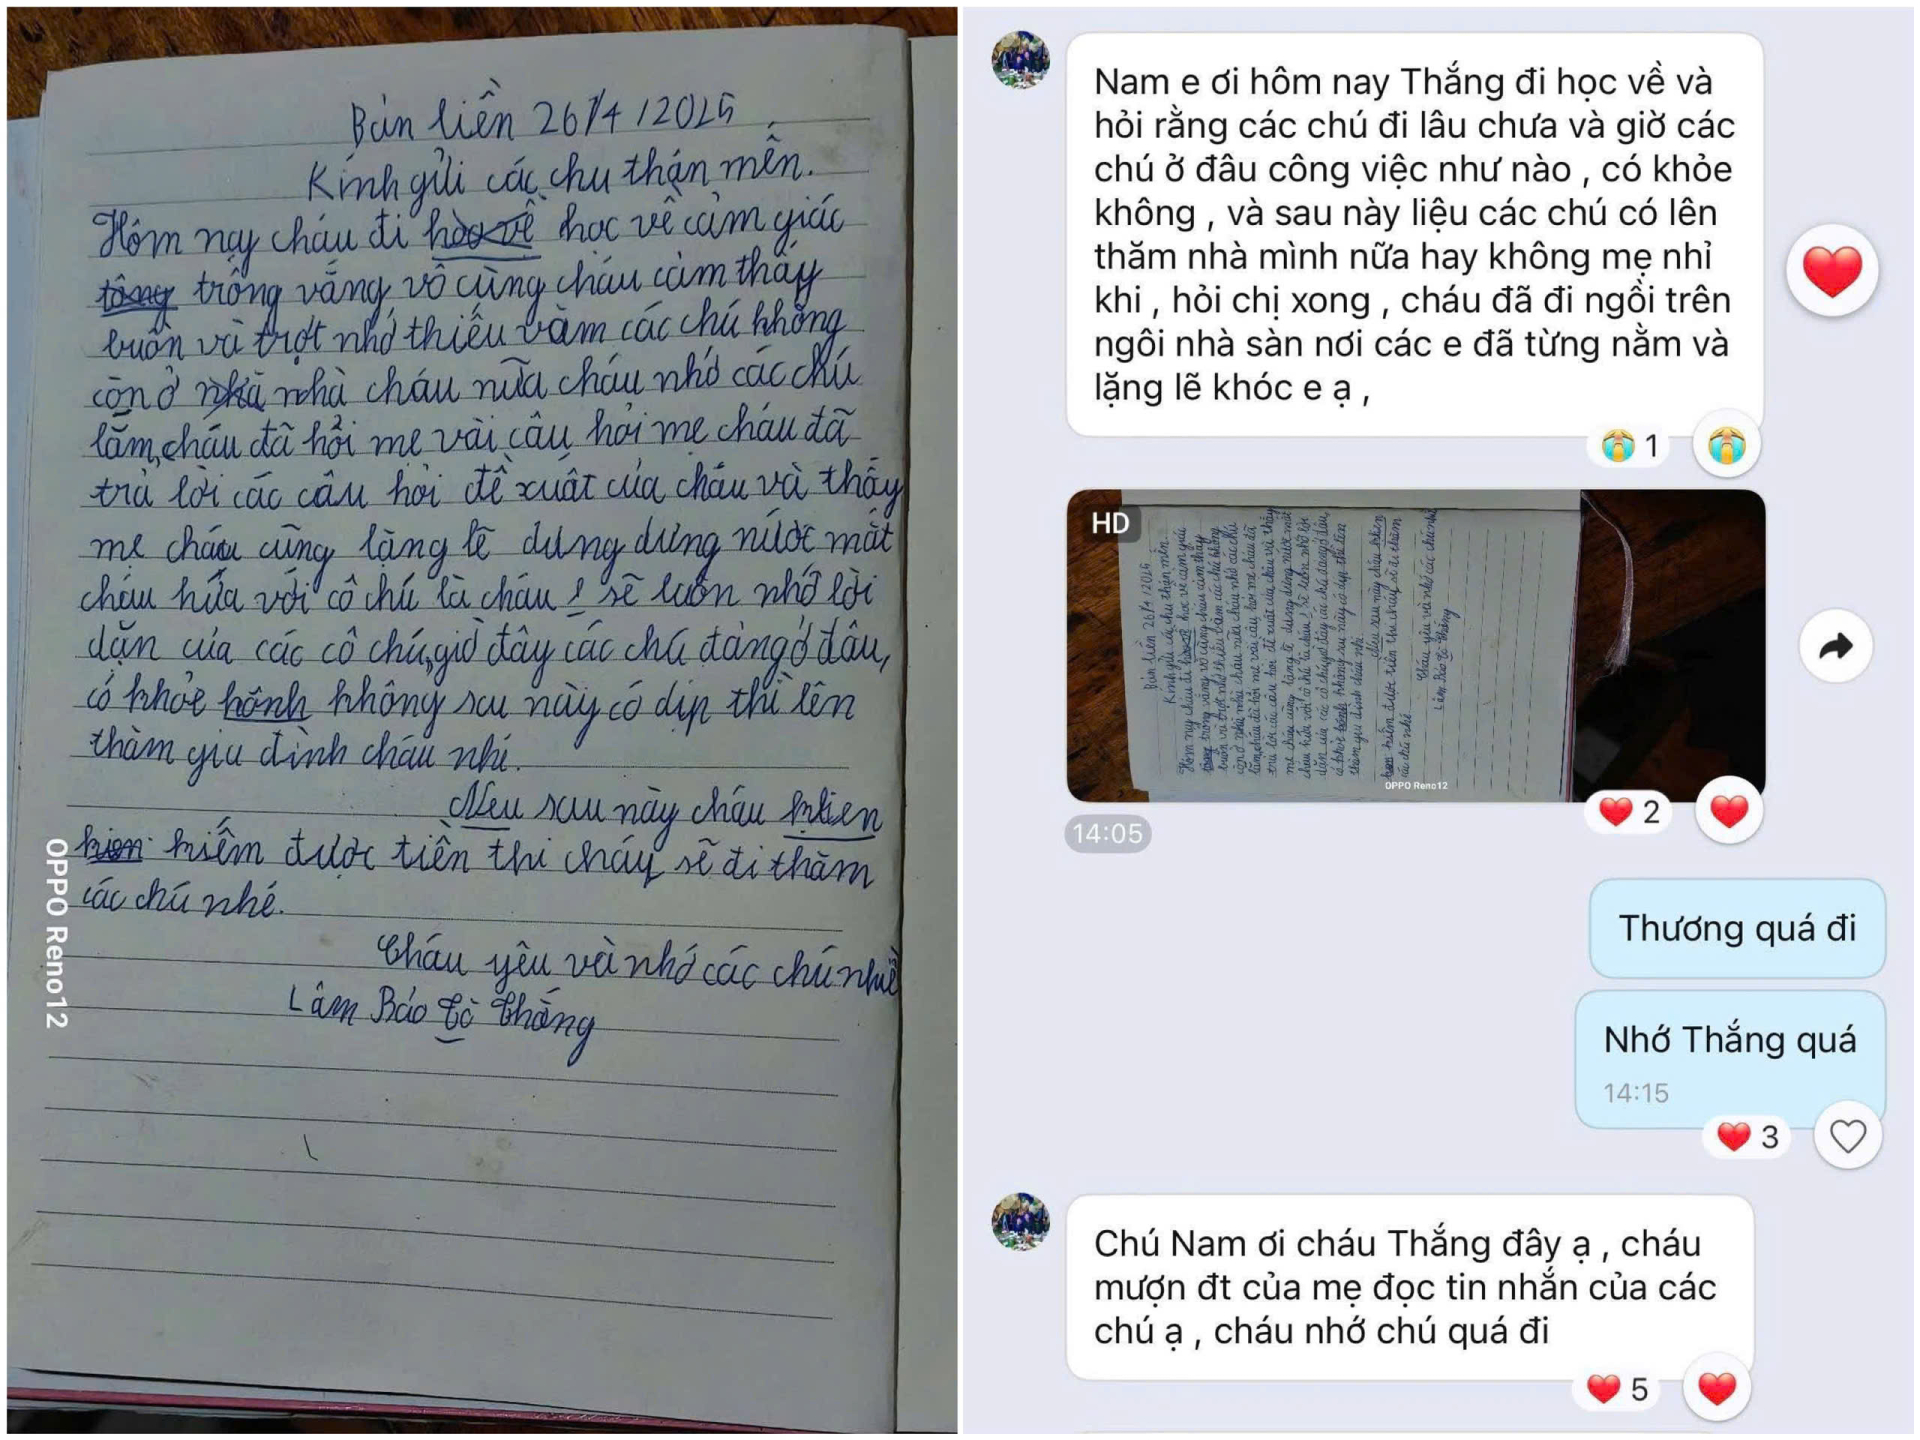 Bản liền 26/4/2025
Kính gửi các chu thận mền.
Hôm nay cháu đi học về cảm giác
trống vắng vô cùng cháu cảm thấy
buồn và trợt nhớ thiếu vắm các chú không
còn ở nhà cháu nữa cháu nhớ các chú
lắm, cháu đã hỏi mẹ vài câu hỏi mẹ cháu đã
trả lời các câu hỏi đề xuất của cháu và thấy
mẹ cháu cũng lặng lẽ dưng dưng nước mắt
cháu hứa với cô chú là cháu ! sẽ luôn nhớ lời
dặn của các cô chú, giờ đây các chú đang ở đâu,
có khỏe không sau này có dịp thì lên
thăm gia đình cháu nhé.
Nếu sau này cháu
kiếm được tiền thì cháy sẽ đi thăm
các chú nhé.
Cháu yêu và nhớ các chú nhiề
Lâm Bảo Tò Thắng
OPPO Reno12
Nam e ơi hôm nay Thắng đi học về và
hỏi rằng các chú đi lâu chưa và giờ các
chú ở đâu công việc như nào , có khỏe
không , và sau này liệu các chú có lên
thăm nhà mình nữa hay không mẹ nhỉ
khi , hỏi chị xong , cháu đã đi ngồi trên
ngôi nhà sàn nơi các e đã từng nằm và
lặng lẽ khóc e ạ ,
1
HD
OPPO Reno12
2
14:05
Thương quá đi
Nhớ Thắng quá
14:15
3
Chú Nam ơi cháu Thắng đây ạ , cháu
mượn đt của mẹ đọc tin nhắn của các
chú ạ , cháu nhớ chú quá đi
5